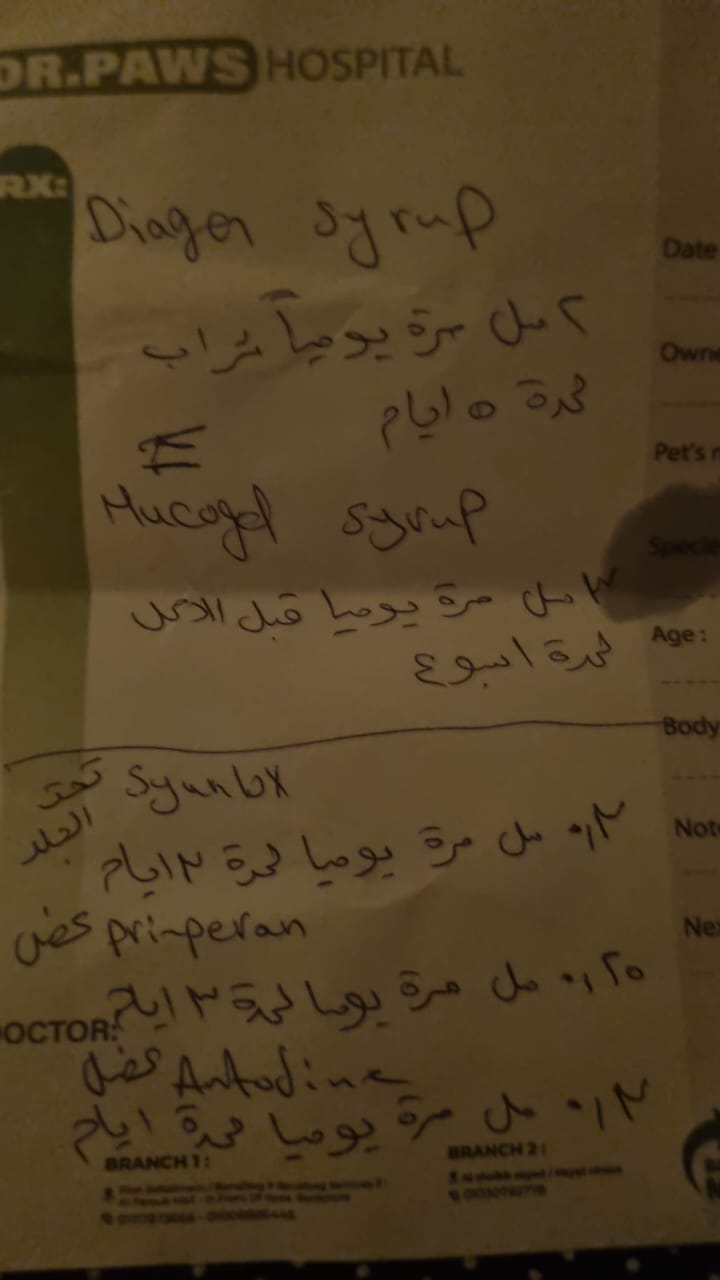 DR.PAWS HOSPITAL
RX:
Diagen syrup
٢ مل مرة يومياً شراب
لمدة ٥ ايام
Mucogel syrup
٣ مل مرة يوميا قبل الاكل
لمدة اسبوع
Synulox تحت الجلد
٠,٣ مل مرة يوميا لمدة ٣ ايام
primperan عضل
٠,٢٥ مل مرة يوميا لمدة ٣ ايام
Antodine عضل
٠,٣ مل مرة يوميا لمدة ايام
Date
Owne
Pet's n
Specie
Age:
Body
Not
Nex
DOCTOR:
BRANCH 1:
BRANCH 2: